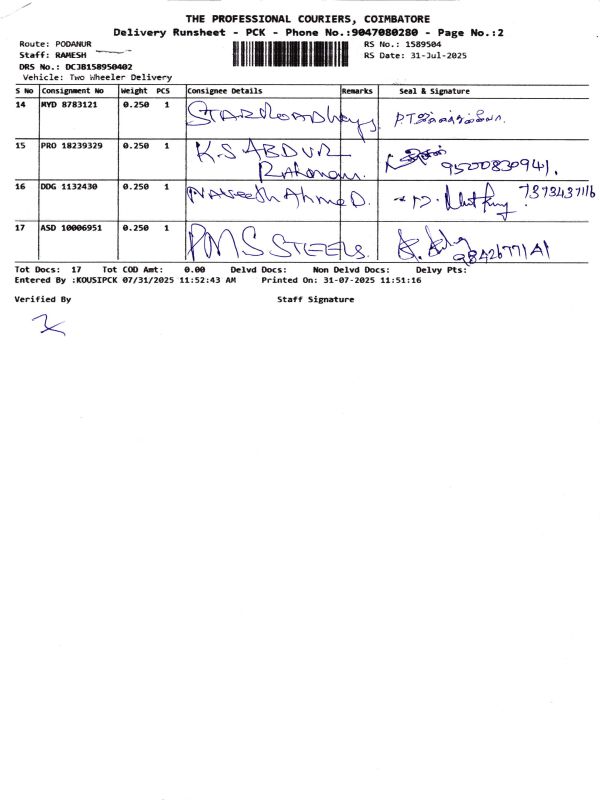 THE PROFESSIONAL COURIERS, COIMBATORE
Delivery Runsheet - PCK - Phone No.:9047080280 - Page No.:2
Route: PODANUR RS No.: 1589504
Staff: RAMESH RS Date: 31-Jul-2025
DRS No.: DCJB158950402
Vehicle: Two Wheeler Delivery
S No Consignment No Weight PCS Consignee Details Remarks Seal & Signature
14 MYD 8783121 0.250 1 STARROADways P.T
15 PRO 18239329 0.250 1 K.S ABDUR
Rahman. 9500830941.
16 DDG 1132430 0.250 1 NAVeeth Ahme D. 7373437116
17 ASD 10006951 0.250 1 PMS STEELS. 9842677141
Tot Docs: 17 Tot COD Amt: 0.00 Delvd Docs: Non Delvd Docs: Delvy Pts:
Entered By :KOUSIPCK 07/31/2025 11:52:43 AM Printed On: 31-07-2025 11:51:16
Verified By Staff Signature